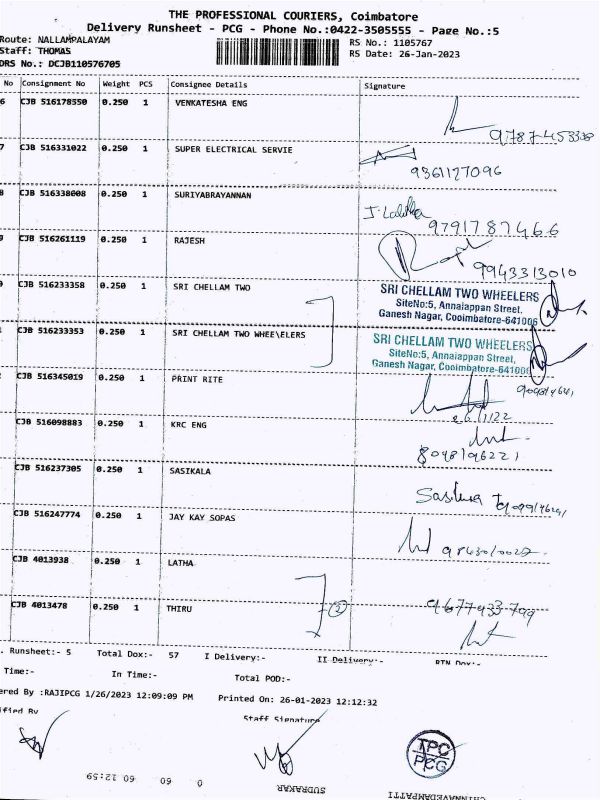 THE PROFESSIONAL COURIERS, Coimbatore
Delivery Runsheet - PCG - Phone No.:0422-3505555 - Page No.:5
Route: NALLAMPALAYAM
RS No.: 1105767
Staff: THOMAS
RS Date: 26-Jan-2023
DRS No.: DCJB110576705
No Consignment No Weight PCS Consignee Details Signature
6 CJB 516178550 0.250 1 VENKATESHA ENG
9787453338
7 CJB 516331022 0.250 1 SUPER ELECTRICAL SERVIE
9361127096
8 CJB 516338008 0.250 1 SURIYABRAYANNAN
J. Lalitha
9791787466
9 CJB 516261119 0.250 1 RAJESH
9943313010
0 CJB 516233358 0.250 1 SRI CHELLAM TWO
SRI CHELLAM TWO WHEELERS
SiteNo:5, Annaiappan Street,
Ganesh Nagar, Cooimbatore-641006
CJB 516233353 0.250 1 SRI CHELLAM TWO WHEE\ELERS
SRI CHELLAM TWO WHEELERS
SiteNo:5, Annaiappan Street,
Ganesh Nagar, Cooimbatore-641006
CJB 516345019 0.250 1 PRINT RITE
CJB 516098883 0.250 1 KRC ENG
8098196221
CJB 516237305 0.250 1 SASIKALA
CJB 516247774 0.250 1 JAY KAY SOPAS
CJB 4013938 0.250 1 LATHA
CJB 4013478 0.250 1 THIRU
2
9677933799
. Runsheet:- 5 Total Dox:- 57 I Delivery:- II Delivery:- RTN Dox:-
Time:- In Time:- Total POD:-
ered By :RAJIPCG 1/26/2023 12:09:09 PM Printed On: 26-01-2023 12:12:32
ified By Staff Signature
TPC
PCG
0 60 60 12:59 SUDRAKAR CHINNAVEDAMPATTI